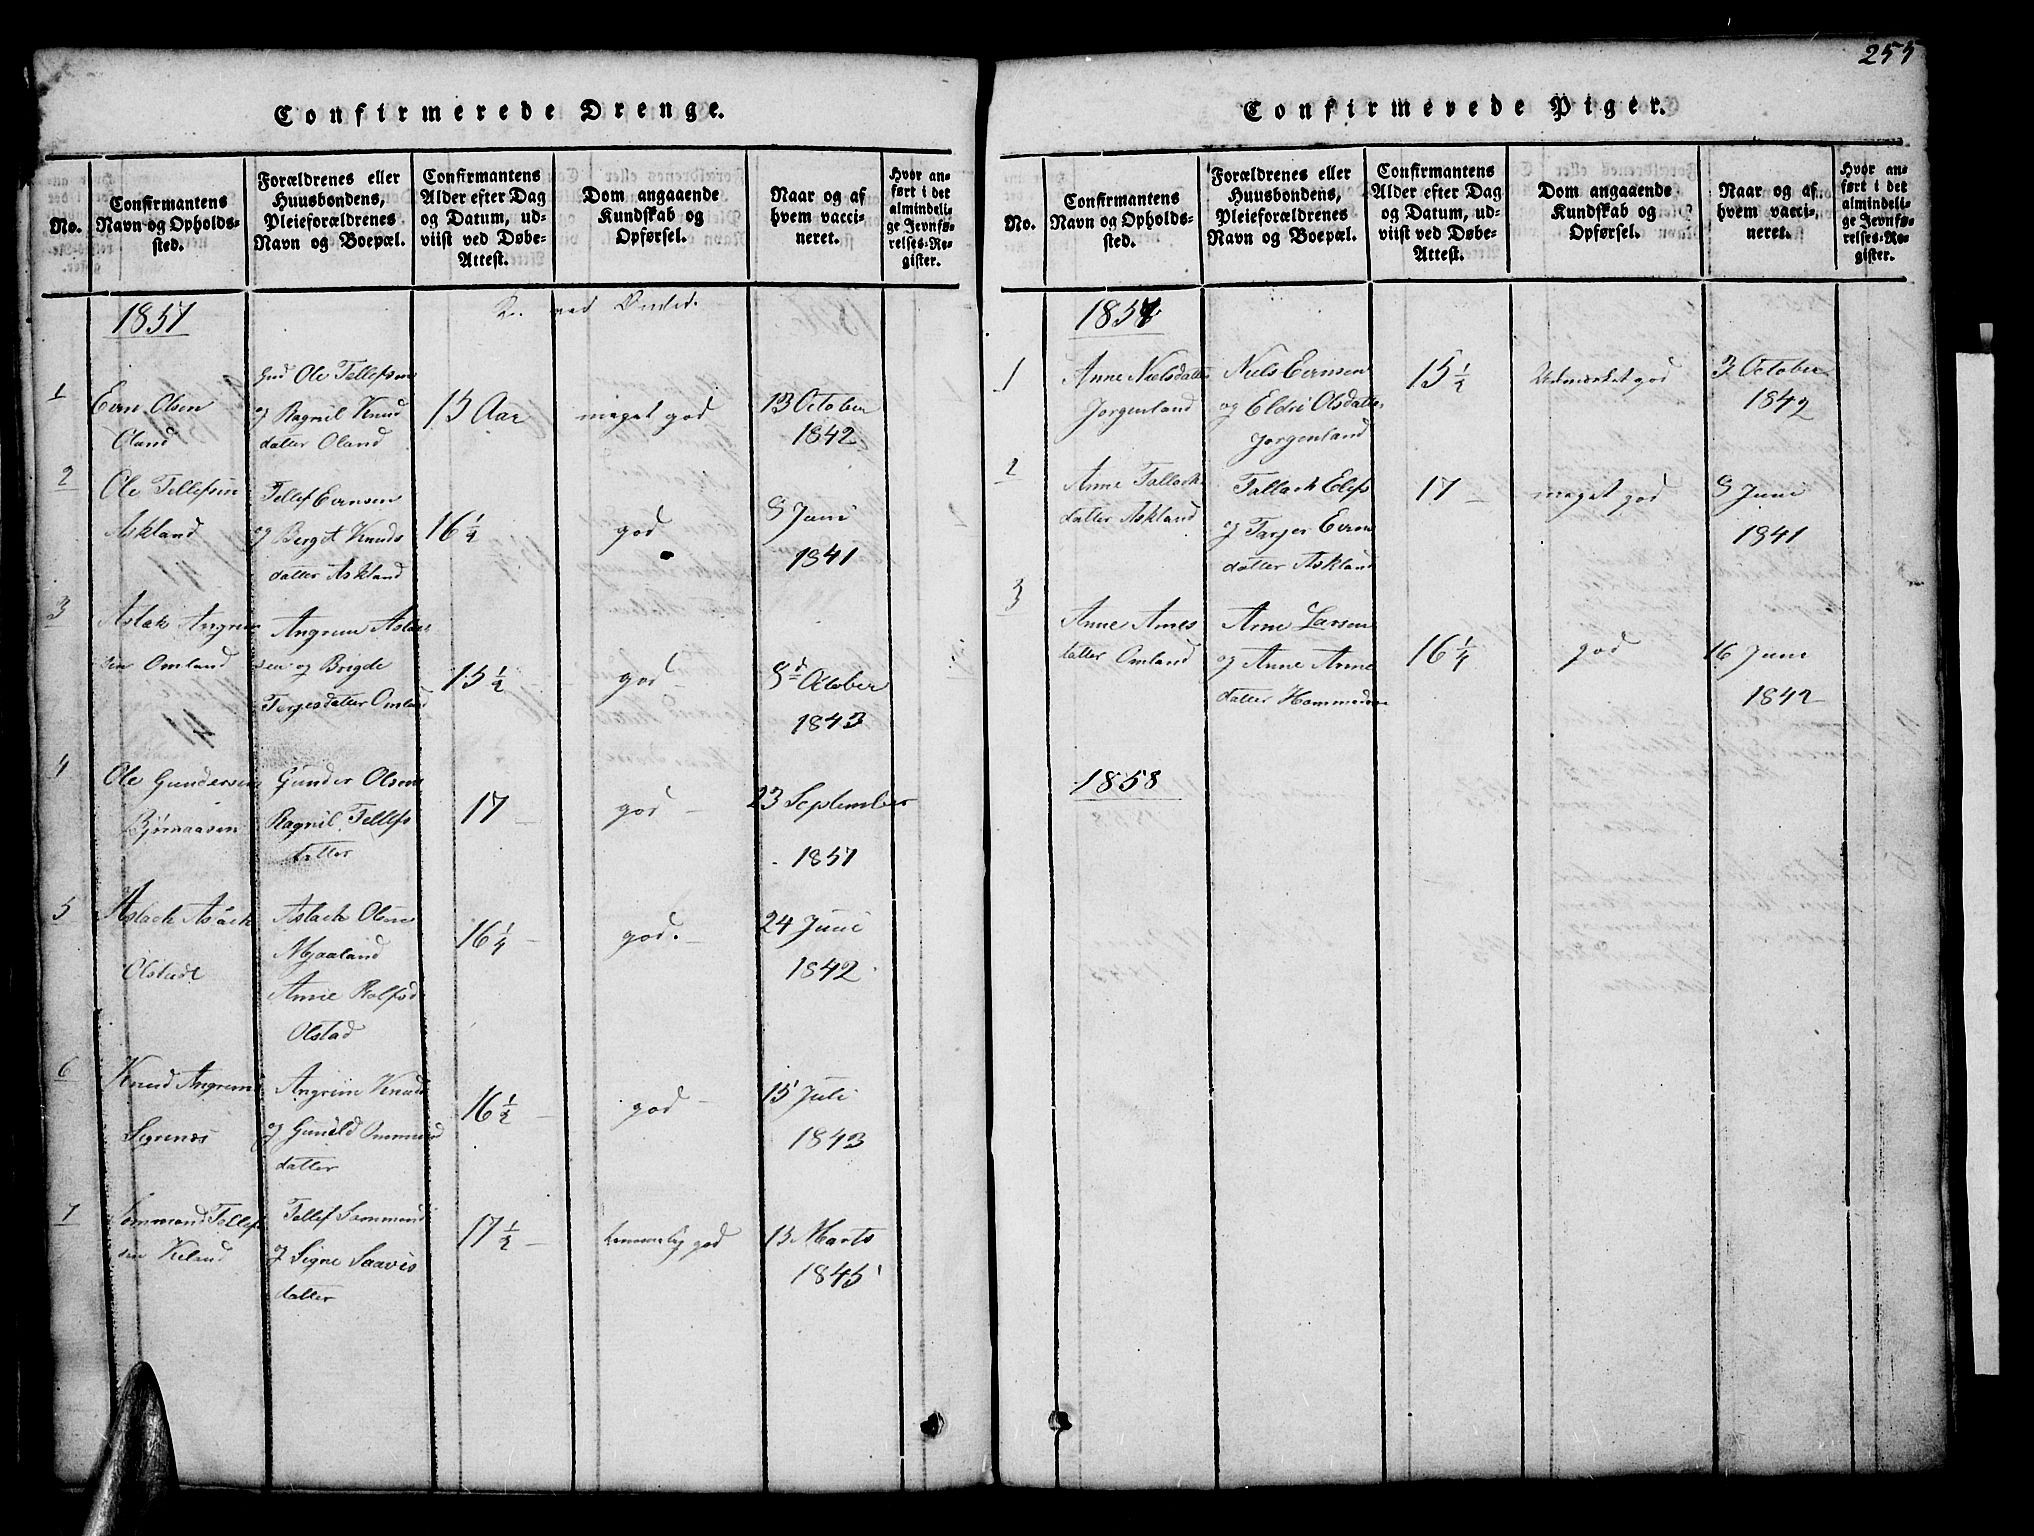 255
Confirmerede Drenge.
No.
Confirmantens Navn og Opholdssted.
Forældrenes eller Huusbondens, Pleieforældrenes Navn og Boepæl.
Confirmantens Alder efter Dag og Datum, udviist ved Døbe-Attest.
Dom angaaende Kundskab og Opførsel.
Naar og af hvem vaccineret.
Hvor anført i det almindelige Jevnførelses-Register.
1857
1
Evin Olsen
Oland
Ole Tellefsen
og Ragnil Knud
datter Oland
15 Aar
meget god
13 October
1842
2
Ole Tellefsen
Askland
Tellef Evensen
og Berget Knuds
datter Askland
16½
god
9 Juni
1841
3
Aslak Angrim
sen Omland
Angrim Aslak
sen og Brigde
Terjesdatter Omland
15½
god
9d October
1843
4
Ole Gundersen
Bjørnaasen
Gunder Olsen
Ragnil Tellefs
datter
17 –
god –
23 September
1857
5
Aslach Aslach
Olstad
Aslach Olsen
Mjaaland
Anne Rolfsd
Olstad
16¼ –
god. –
24 Juni
1842
6
Knud Angrims
Sigrenæs
Angrim Knuds
og Gunild
datter
16½ –
god –
15 Juli
1843
7
Sommond Tellef
sen
Tellef Sommond
og Signe Saavis
datter
17½ –
temmelig god
13 Marts
1845
Confirmevede Piger.
No.
Confirmantens Navn og Opholdssted.
Forældrenes eller Huusbondens, Pleieforældrenes Navn og Boepæl.
Confirmantens Alder efter Dag og Datum, udviist ved Døbe-Attest.
Dom angaaende Kundskab og Opførsel.
Naar og af hvem vaccineret.
Hvor anført i det almindelige Jevnførelses-Register.
1857
1
Anne Nielsdatter
Jorgenland
Niels Evensen
og Eldri Olsdatter
Jorgenland
15½
Udmærket god
3 October
1842
2
Anne Tallachs
datter Askland
Tallach Elefs
og Tarjer Even
datter Askland
17 –
meget god
9 Juni
1841
3
Anne Arnes
datter Omland
Arne Larsen
og Anne Arne
datter
16¼
god
16 Juni
1842
1858